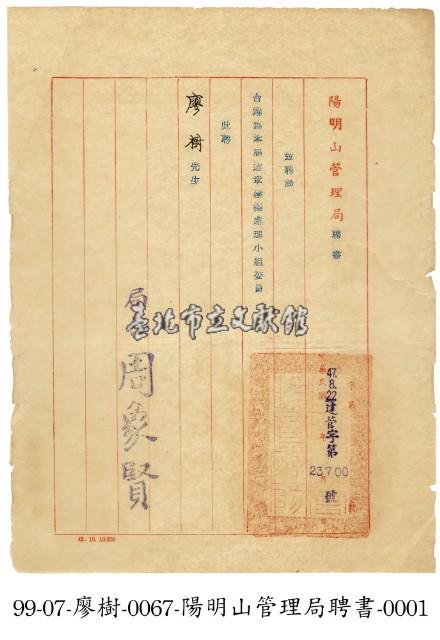 陽明山管理局聘書
茲聘請
台端為本局違章建築處理小組委員
此聘
廖樹先生
局
周象賢
臺北市立文獻館
47.8.22
建管字第
23700
號
45.10.10.000
99-07-廖樹-0067-陽明山管理局聘書-0001